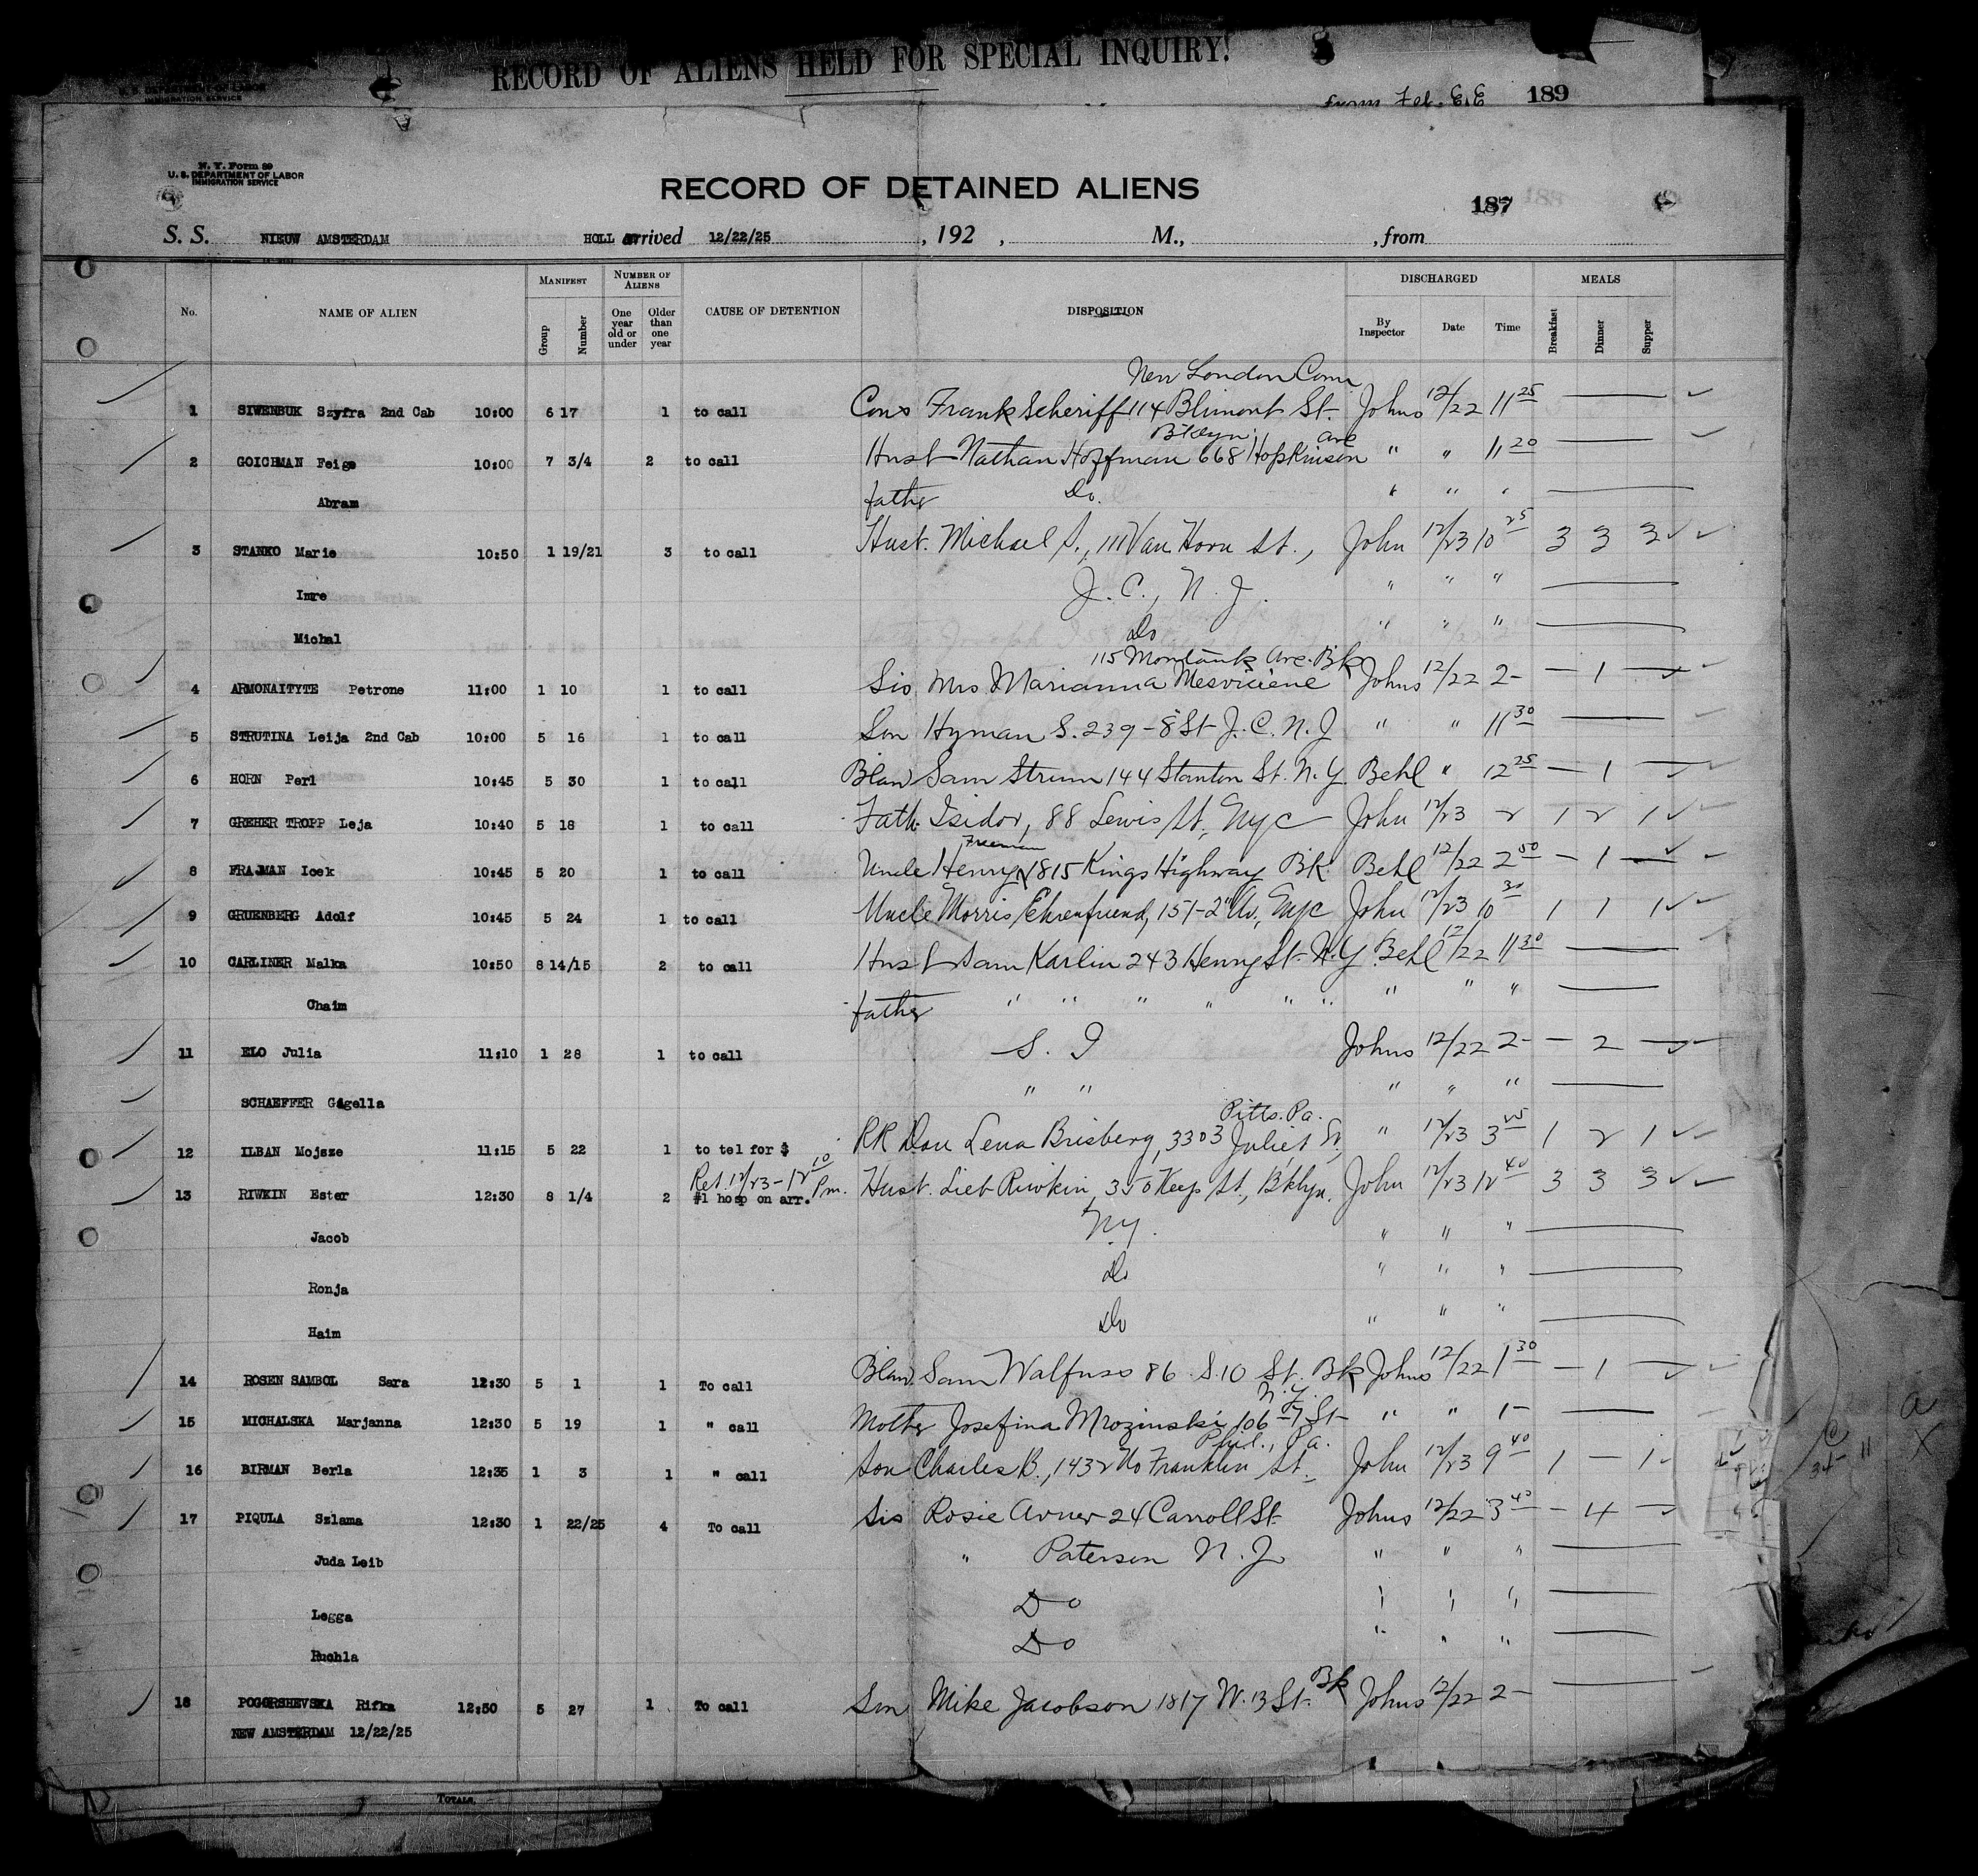 RECORD OF ALIENS HELD FOR SPECIAL INQUIRY!
U. S. DEPARTMENT OF LABOR
IMMIGRATION SERVICE
from Feb. 189
N. Y. Form 89
U. S. DEPARTMENT OF LABOR
IMMIGRATION SERVICE
RECORD OF DETAINED ALIENS
187
S. S. NIEUW AMSTERDAM HOLL arrived 12/22/25, 192 , M., , from
No. NAME OF ALIEN MANIFEST Group Number NUMBER OF ALIENS One year old or under Older than one year CAUSE OF DETENTION DISPOSITION DISCHARGED By Inspector Date Time MEALS Breakfast Dinner Supper
New London Conn
1 SIWENBUK Szyfra 2nd Cab 10:00 6 17 1 to call Cons Frank Scheriff 114 Blimont St. Johns 12/22 11 25
Bklyn Ave
2 GOICHMAN Feiga 10:00 7 3/4 2 to call Husb Nathan Hoffman 668 Hopkinson " " 11 20
Abram father Do. " " "
3 STANKO Marie 10:50 1 19/21 3 to call Husb. Michael S., 111 Van Horn St., John 12/23 10 25 3 3 3
Imre J. C., N. J. " " "
Michal Do " " "
115 Montauk Ave. Bk
4 ARMONAITYTE Petrone 11:00 1 10 1 to call Sis Mrs Marianna Mesviciene Johns 12/22 2- — 1 —
5 STRUTINA Leija 2nd Cab 10:00 5 16 1 to call Son Hyman S. 239-8 St J. C. N. J " " 11 30
6 HORN Perl 10:45 5 30 1 to call Blaw Sam Strum 144 Stanton St. N. Y. Behl " 12 25 — 1 —
7 GREHER TROPP Leja 10:40 5 18 1 to call Fath. Isidor, 88 Lewis St, NYC John 12/23 2 1 2 1
Freeman
8 FRAJMAN Icek 10:45 5 20 1 to call Uncle Henry 1815 Kings Highway Bk. Behl 12/22 2 50 — 1 —
9 GRUENBERG Adolf 10:45 5 24 1 to call Uncle Morris Ehrenfriend, 151-2" Av, NYC John 12/23 10 30 1 1 1
10 CARLINER Malka 10:50 8 14/15 2 to call Husb Sam Karlin 243 Henry St. N. Y Behl 12/22 11 30
Chaim father " " " " " " " " "
11 ELO Julia 11:10 1 28 1 to call S. I Johns 12/22 2- — 2 —
SCHAEFFER Gagella " " " " "
Pitts. Pa.
12 ILBAN Mojsze 11:15 5 22 1 to tel for $ RR Dau Lena Brisberg, 3303 Juliet St, " 12/23 3 45 1 2 1
Ret. 12/23-12 10 Pm.
13 RIWKIN Ester 12:30 8 1/4 2 #1 hosp on arr. Husb. Lieb Riwkin, 350 Keep St, Bklyn. John 12/23 12 40 3 3 3
Jacob N.Y. " " "
Ronja Do " " "
Haim Do " " "
14 ROSEN SAMBOL Sara 12:30 5 1 1 To call Blaw. Sam Walfuso 86 S. 10 St. Bk Johns 12/22 1 30 — 1 —
N. Y.
15 MICHALSKA Marjanna 12:30 5 19 1 " call Mother Josefina Mrozinski 106-7 St " " 1-
Phil., Pa.
16 BIRMAN Berla 12:35 1 3 1 " call Son Charles B., 1432 No Franklin St., John 12/23 9 40 1 — 1
17 PIQULA Szlama 12:30 1 22/25 4 To call Sis Rosie Avner 24 Carroll St. Johns 12/22 3 40 — 4 —
Juda Leib " Paterson N. J. " " "
Legga Do " " "
Ruchla Do " " "
Bk
18 POGORSHEVSKA Rifka 12:50 5 27 1 To call Son Mike Jacobson 1817 W. 13 St. Johns 12/22 2-
NEW AMSTERDAM 12/22/25
TOTALS,